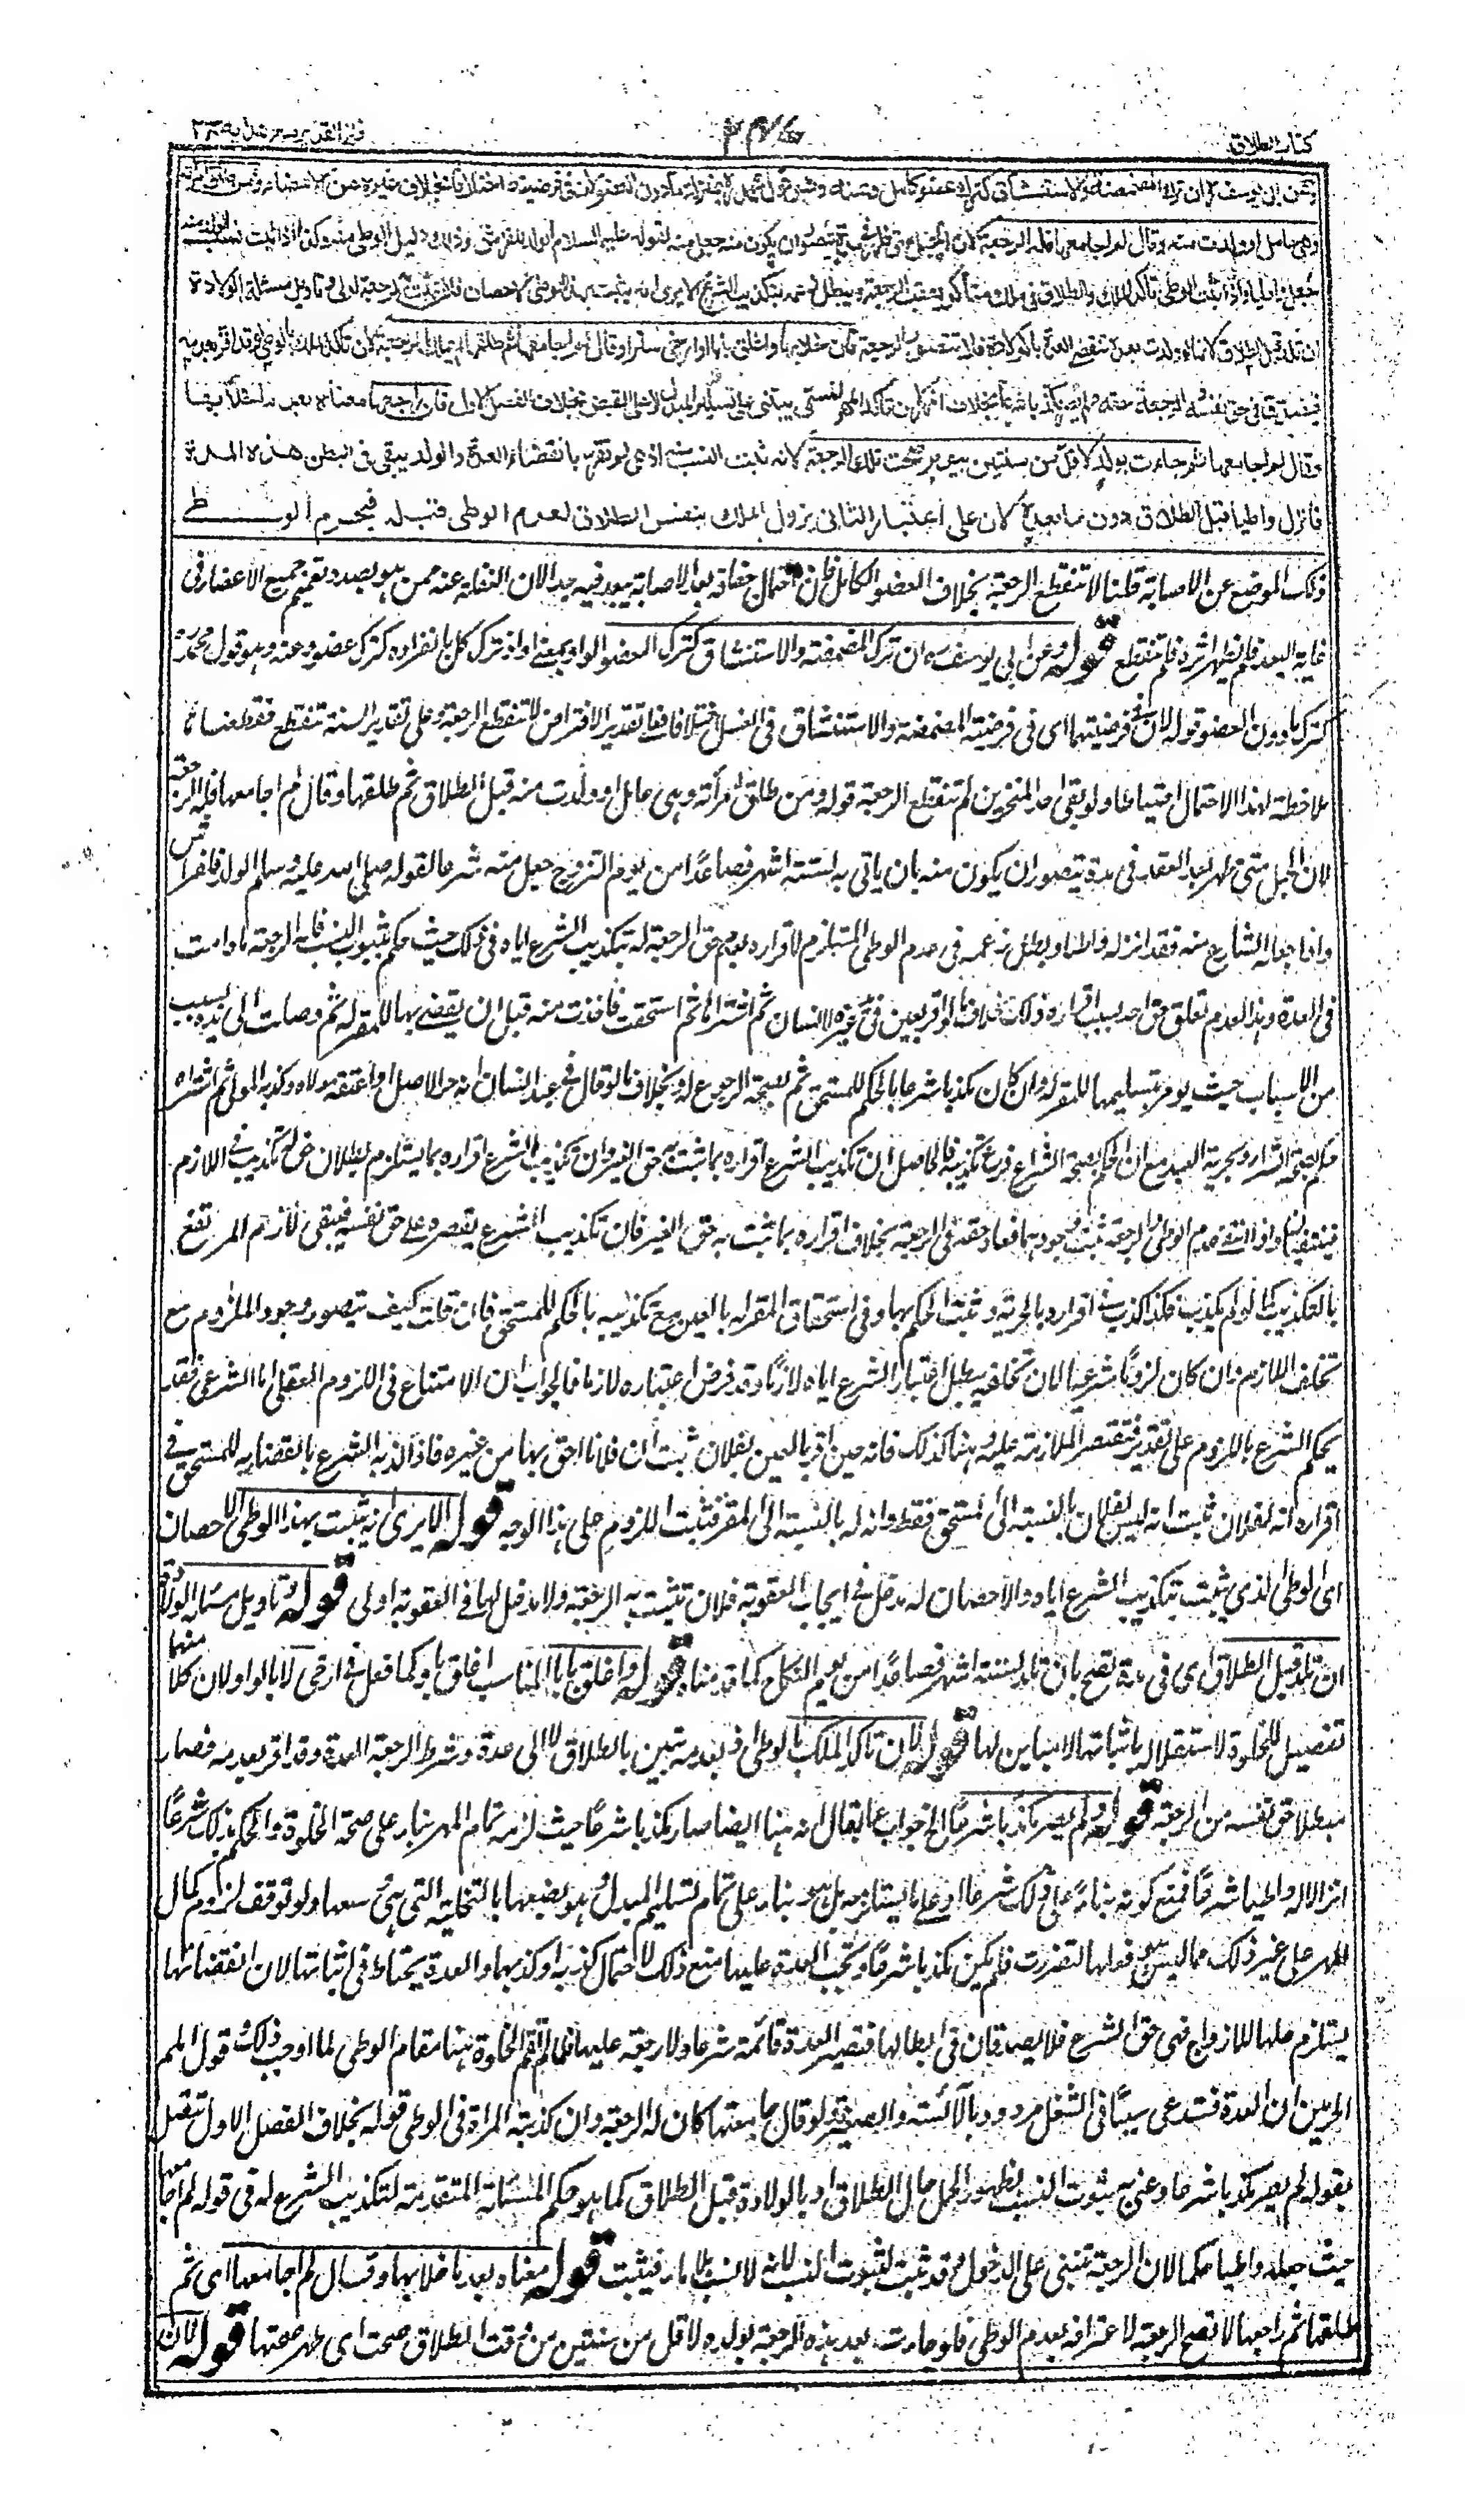 كتاب الطلاق
فتح القدير مع هداية ج٢
وعن ابي يوسف ان ترك المضمضة والاستنشاق كترك عضو كامل وعنه وهو قول محمد بمنزلة ما دون العضو لان في فرضيته اختلافا بخلاف غيره من الاعضاء ومن طلق امرأته
وهي حامل او ولدت منه وقال لم اجامعها فله الرجعة لان الحبل متى ظهر في مدة يتصور ان يكون منه جعل منه لقوله عليه السلام الولد للفراش وذلك دليل الوطي منه وكذا اذا ثبت نسب الولد منه
جعل واطيا واذا ثبت الوطي تأكد الملك والطلاق في ملك متأكد يعقب الرجعة ويبطل زعمه بتكذيب الشرع الا يرى انه يثبت بهذا الوطي الاحصان فلان تثبت به الرجعة اولى وتاويل مسئلة الولادة
ان تلد قبل الطلاق لانها لو ولدت بعده تنقضي العدة بالولادة فلا تتصور الرجعة فان خلا بها واغلق بابا او ارخى سترا وقال لم اجامعها ثم طلقها لم يملك الرجعة لان تأكد الملك بالوطي وقد اقر بعدمه
فيصدق في حق نفسه والرجعة حقه ولم يصر مكذبا شرعا بخلاف المهر لان تأكد المهر المسمى يبتنى على تسليم المبدل لا على القبض بخلاف الفصل الاول فان راجعها معناه بعد ما خلا بها
وقال لم اجامعها ثم جاءت بولد لاقل من سنتين بيوم صحت تلك الرجعة لانه ثبت النسب منه اذ هي لم تقر بانقضاء العدة والولد يبقى في البطن هذه المدة
فانزل واطيا قبل الطلاق دون ما بعده لان على اعتبار الثاني يزول الملك بنفس الطلاق لعدم الوطي قبله فيحرم الوطي
ذلك الموضع عن الاصابة قلنا لا تنقطع الرجعة بخلاف العضو الكامل فان احتمال جفافه بعد الاصابة يبعد فيه جدا لان الغفلة عنه ممن هو بصدد تعميم جميع الاعضاء في
غاية البعد فلم يظهر اثره فلم تنقطع قوله وعن ابي يوسف ره ان ترك المضمضة والاستنشاق كترك العضو الواو بمعنى او اذ ترك كل بانفراده كترك عضو وعنه وهو قول محمد ره
كترك ما دون العضو قوله لان في فرضيتها اي في فرضية المضمضة والاستنشاق في الغسل اختلافا فعلى تقدير الافتراض لا تنقطع الرجعة وعلى تقدير السنة تنقطع فقطعناها
ملاحظة لهذا الاحتمال احتياطا ولو بقي احد المنخرين لم تنقطع الرجعة قوله ومن طلق امرأته وهي حامل او ولدت منه قبل الطلاق ثم طلقها وقال لم اجامعها فله الرجعة
لان الحبل متى ظهر بعد العقد في مدة يتصور ان يكون منه بان ياتي به لستة اشهر فصاعدا من يوم التزوج جعل منه شرعا لقوله صلى الله عليه وسلم الولد للفراش
واذا جعله الشارع منه فقد انزله واطئا وبطل زعمه في عدم الوطي المستلزم لاقراره بعدم حق الرجعة له بتكذيب الشرع اياه في ذلك حيث حكم بثبوت النسب فله الرجعة ما دامت
في العدة وهذا لعدم تعلق حق احد بسبب اقراره ذلك بخلاف ما لو اقر بعين في يد غيره لانسان ثم اشتراها ثم استحقت فاخذت منه قبل ان يقضى بها للمقر له ثم وصلت الى يده بسبب
من الاسباب حيث يومر بتسليمها للمقر له وان كان مكذبا شرعا بالحكم للمستحق ثم بصحة الرجوع له وبخلاف ما لو قال في عبد انسان انه حر الاصل او اعتقه مولاه وكذبه المولى ثم اشتراه
حكم بصحة الشراء وبحرية العبد مع ان الحكم بصحة الشراء فرع تكذيبه فالحاصل ان تكذيب الشرع اقراره بما ثبت به حق الغير وان تكذيب الشرع اقراره بما يستلزم بطلان حق له تكذيب في اللازم
فينتفيان واذا انتفى عدم الوطي والرجعة ثبت وجودهما فعاد حقه في الرجعة بخلاف اقراره بما ثبت به حق الغير فان تكذيب الشرع يقصره على حق نفسه فيبقى لازم المرتفع
بالتكذيب كما لو لم يكذب فكذا كذب في اقراره بالحرية وثبت الحكم بها وفي استحقاق المقر له بالعين مع تكذيبه بالحكم للمستحق فان قلت كيف يتصور وجود الملزوم مع
تخلف اللازم وان كان لزوما شرعيا لان تخلفه يبطل اعتبار الشرع اياه لازما وقد فرض اعتباره لازما فالجواب ان الامتناع في اللزوم العقلي اما الشرعي فقد
يحكم الشرع باللزوم على تقدير فتقتصر الملازمة عليه وهنا كذلك فانه حين اقر بالعين لفلان ثبت ان فلانا احق بها من غيره فاذا كذبه الشرع بالقضاء به للمستحق في
اقراره انه لفلان ثبت انه ليس لفلان بالنسبة الى المستحق فقط وانه له بالنسبة الى المقر فثبت اللزوم على هذا الوجه قوله الا يرى انه يثبت بهذا الوطي الاحصان
اي الوطي الذي يثبت بتكذيب الشرع اياه والاحصان له مدخل في ايجاب العقوبة فلان تثبت به الرجعة ولا مدخل لها في العقوبة اولى قوله وتاويل مسئلة الولادة
ان تلد قبل الطلاق اي في مدة تصلح بان تلد لستة اشهر فصاعدا من يوم النكاح كما قدمنا قوله واغلق بابا المناسب اغلق باو كما فعل في ارخى لا بالواو لان كلا منهما
تفصيل للخلوة لاستقلاله باثباتها لا مباين لها قوله لان تاكد الملك بالوطي اذ بعدمه تبين بالطلاق لا الى عدة وشرط الرجعة العدة وقد اقر بعدمه فصار
مبطلا حق نفسه من الرجعة قوله ولم يصر مكذبا شرعا الخ جواب عما يقال انه هنا ايضا صار مكذبا شرعا حيث لزمه تمام المهر بناء على صحة الخلوة والحكم بذلك شرعا
انزالا له واطيا شرعا فمنع كونه بناء على ذلك شرعا او على ما يستلزمه بل هو بناء على تمام تسليم المبدل وهو بضعها بالتخلية التي هي وسعها ولو توقف لزوم كمال
المهر على غير ذلك مما ليس هو فعلها لتضررت فلم يكن مكذبا شرعا وتجب العدة عليها مع ذلك لاحتمال كذبه او كذبهما والعدة يحتاط في اثباتها لان انقضائها
يستلزم حلها للازواج فهي حق الشرع فلا يصدقان في ابطالها فتصير العدة قائمة شرعا ولا رجعة عليها فما لم تقم الخلوة هنا مقام الوطي لما اوجب ذلك وقول امام
الحرمين ان العدة تستدعي سببا في الشغل مردود بالآئسة والصغيرة ولو قال جامعتها كان له الرجعة وان كذبته المراة في الوطي قوله بخلاف الفصل الاول متصل
بقوله لم يصر مكذبا شرعا وعنى به ثبوت النسب بظهور الحمل حال الطلاق او بالولادة قبل الطلاق كما هو حكم المسئلة المتقدمة لتكذيب الشرع له في قوله لم اجامعها
حيث جعله واطيا حكما لان الرجعة تبتنى على الدخول وقد ثبت لثبوت النسب لانه لا نسب بلا ماء فيثبت قوله معناه بعد ما خلا بها وقال لم اجامعها اي ثم
طلقها ثم راجعها لا تصح الرجعة لاعترافه بعدم الوطي فلو جاءت بعد هذه الرجعة بولد لاقل من سنتين من وقت الطلاق صحت اي ظهر صحتها قوله لان